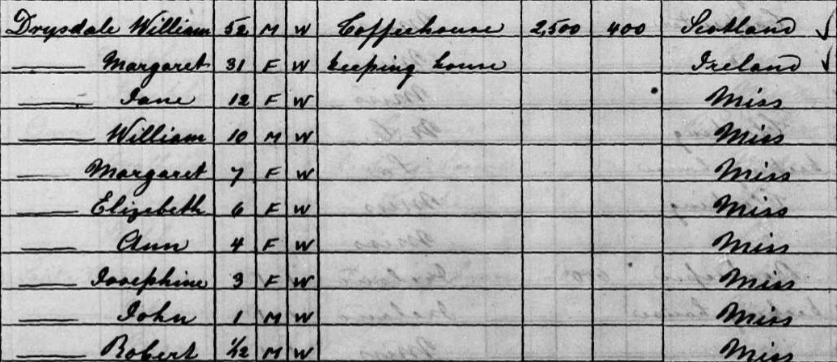 Drysdale William 52 M W Coffeehouse 2,500 400 Scotland
Margaret 31 F W keeping house Ireland
Jane 12 F W Miss
William 10 M W Miss
Margaret 7 F W Miss
Elizebeth 6 F W Miss
Ann 4 F W Miss
Josephine 3 F W Miss
John 1 M W Miss
Robert 1/12 M W Miss